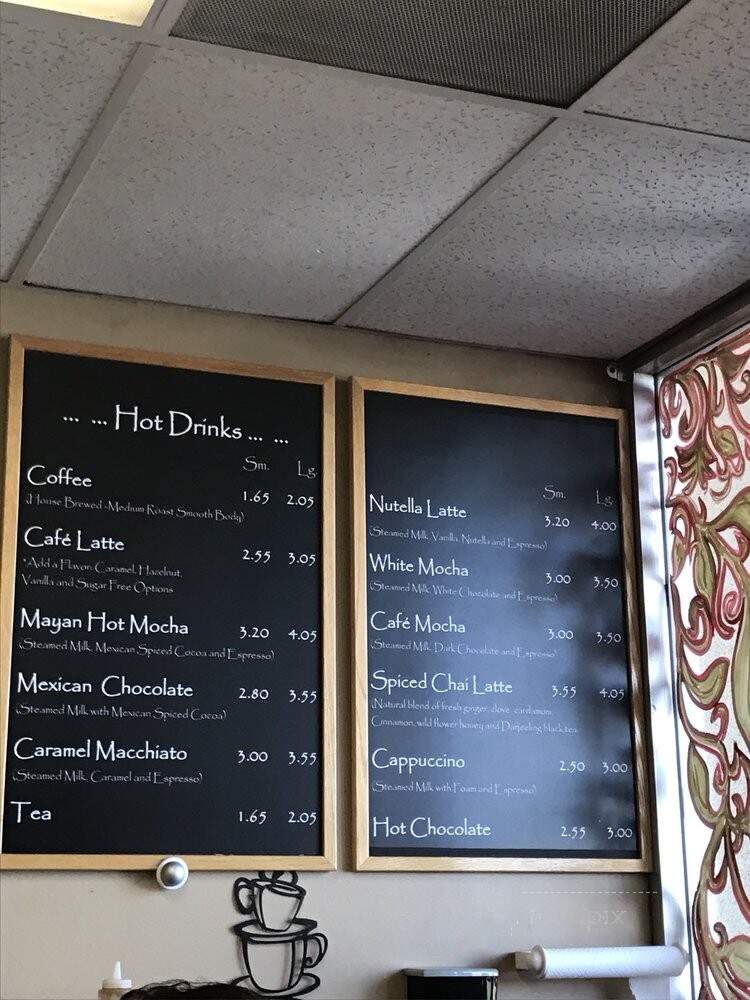 ... ... Hot Drinks ... ...
Sm. Lg.
Coffee 1.65 2.05
(House Brewed -Medium Roast Smooth Body)
Café Latte 2.55 3.05
*Add a Flavor: Caramel, Hazelnut,
Vanilla and Sugar Free Options
Mayan Hot Mocha 3.20 4.05
(Steamed Milk, Mexican Spiced Cocoa and Espresso)
Mexican Chocolate 2.80 3.55
(Steamed Milk with Mexican Spiced Cocoa)
Caramel Macchiato 3.00 3.55
(Steamed Milk, Caramel and Espresso)
Tea 1.65 2.05
Sm. Lg.
Nutella Latte 3.20 4.00
(Steamed Milk, Vanilla, Nutella and Espresso)
White Mocha 3.00 3.50
(Steamed Milk, White Chocolate and Espresso)
Café Mocha 3.00 3.50
(Steamed Milk, Dark Chocolate and Espresso)
Spiced Chai Latte 3.55 4.05
(Natural blend of fresh ginger, clove, cardamom,
Cinnamon, wild flower honey and Darjeeling black tea.
Cappuccino 2.50 3.00
(Steamed Milk with Foam and Espresso)
Hot Chocolate 2.55 3.00